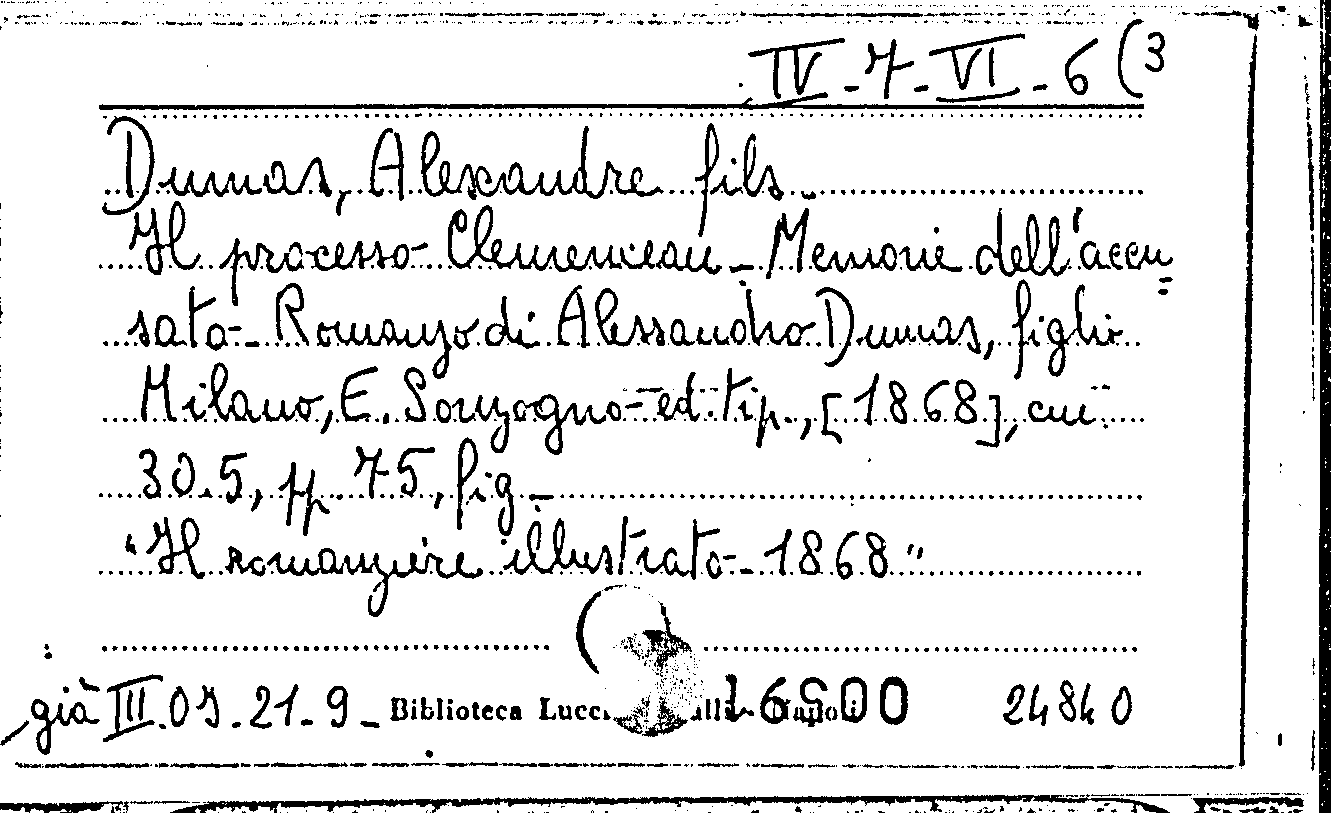 IV-7-VI-6 (3
Dumas, Alexandre fils -
Il processo Clemenceau - Memorie dell'accu=
sato - Romanzo di Alessandro Dumas, figlio
Milano, E. Sonzogno - ed. tip., [1868], cm
30.5, pp. 75, fig -
"Il romanziere illustrato - 1868"
già III.05.21-9 - Biblioteca 24840